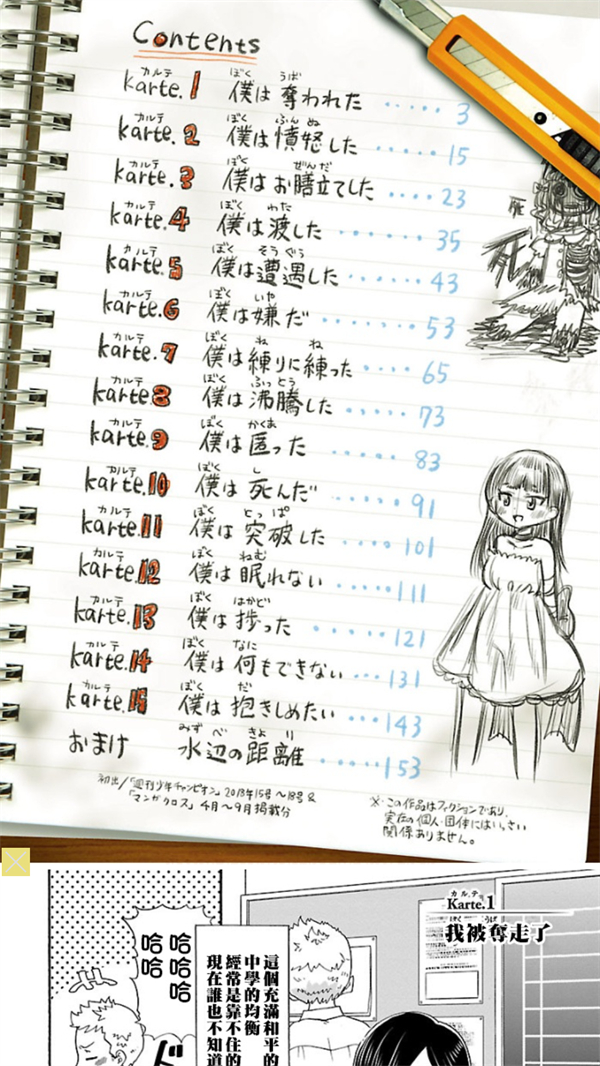 Contents
karte.1 僕は奪われた ‥‥‥ 3
karte.2 僕は憤怒した ‥‥‥ 15
karte.3 僕はお膳立てした ‥‥ 23
karte.4 僕は渡した ‥‥‥‥ 35
karte.5 僕は遭遇した ‥‥‥ 43
karte.6 僕は嫌だ ‥‥‥‥ 53
karte.7 僕は練りに練った ‥‥ 65
karte.8 僕は沸騰した ‥‥‥ 73
karte.9 僕は匿った ‥‥‥‥ 83
karte.10 僕は死んだ ‥‥‥ 91
karte.11 僕は突破した ‥‥ 101
karte.12 僕は眠れない ‥‥‥ 111
karte.13 僕は捗った ‥‥‥ 121
karte.14 僕は何もできない ‥ 131
karte.15 僕は抱きしめたい ‥ 143
おまけ 水辺の距離 ‥‥‥ 153
初出/「週刊少年チャンピオン」2018年15号〜18号&
「マンガクロス」4月〜9月掲載分
※この作品はフィクションであり、
実在の個人・団体にはいっさい
関係ありません。
カルテ
Karte.1
我被奪走了
這個充滿和平的
中學的均衡
經常是靠不住的
現在誰也不知道
哈哈哈
哈哈
ド